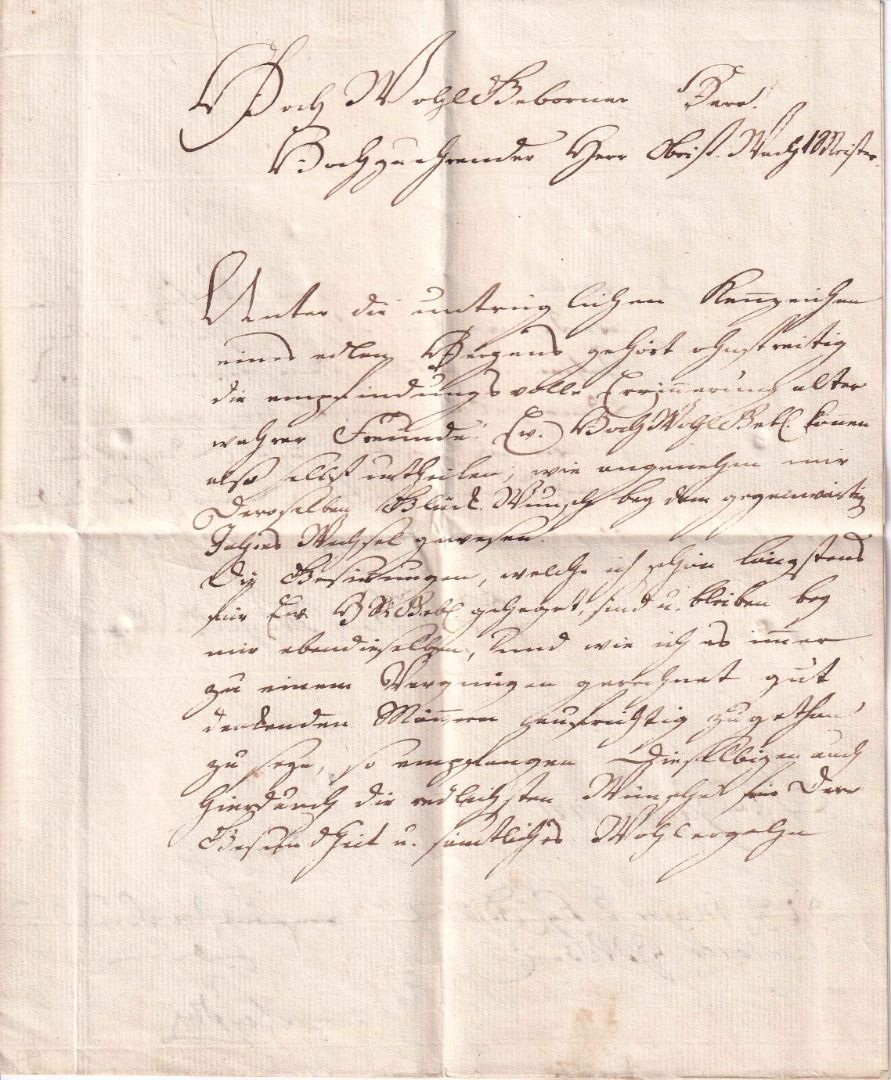 Hoch WohlGeborner Herr!
Hochzuehrender Herr Obrist Wachtmeister.
Unter die untrüglichen Kennzeichen
eines edlen Herzens gehört ohnstreitig
die empfindungsvolle Errinnerung alter
wahrer Freunde. Ew. HochWohlGebl. können
also selbst urtheilen, wie angenehm mir
Deroselben Glück Wunsch bey dem gegenwärtig
Jahres Wechsel gewesen.
Die Gesinnungen, welche ich schon längstens
für Ew. Gebl. geheget, sind u. bleiben bey
mir ebendieselben, und wie ich es immer
zu einem Vergnügen gerechnet gut
denkenden Männern aufrichtig zugethan
zu seyn, so empfangen Dieselbigen auch
hierdurch die redlichsten Wünsche für Dero
Gesundheit u. sämtliches Wohlergehn